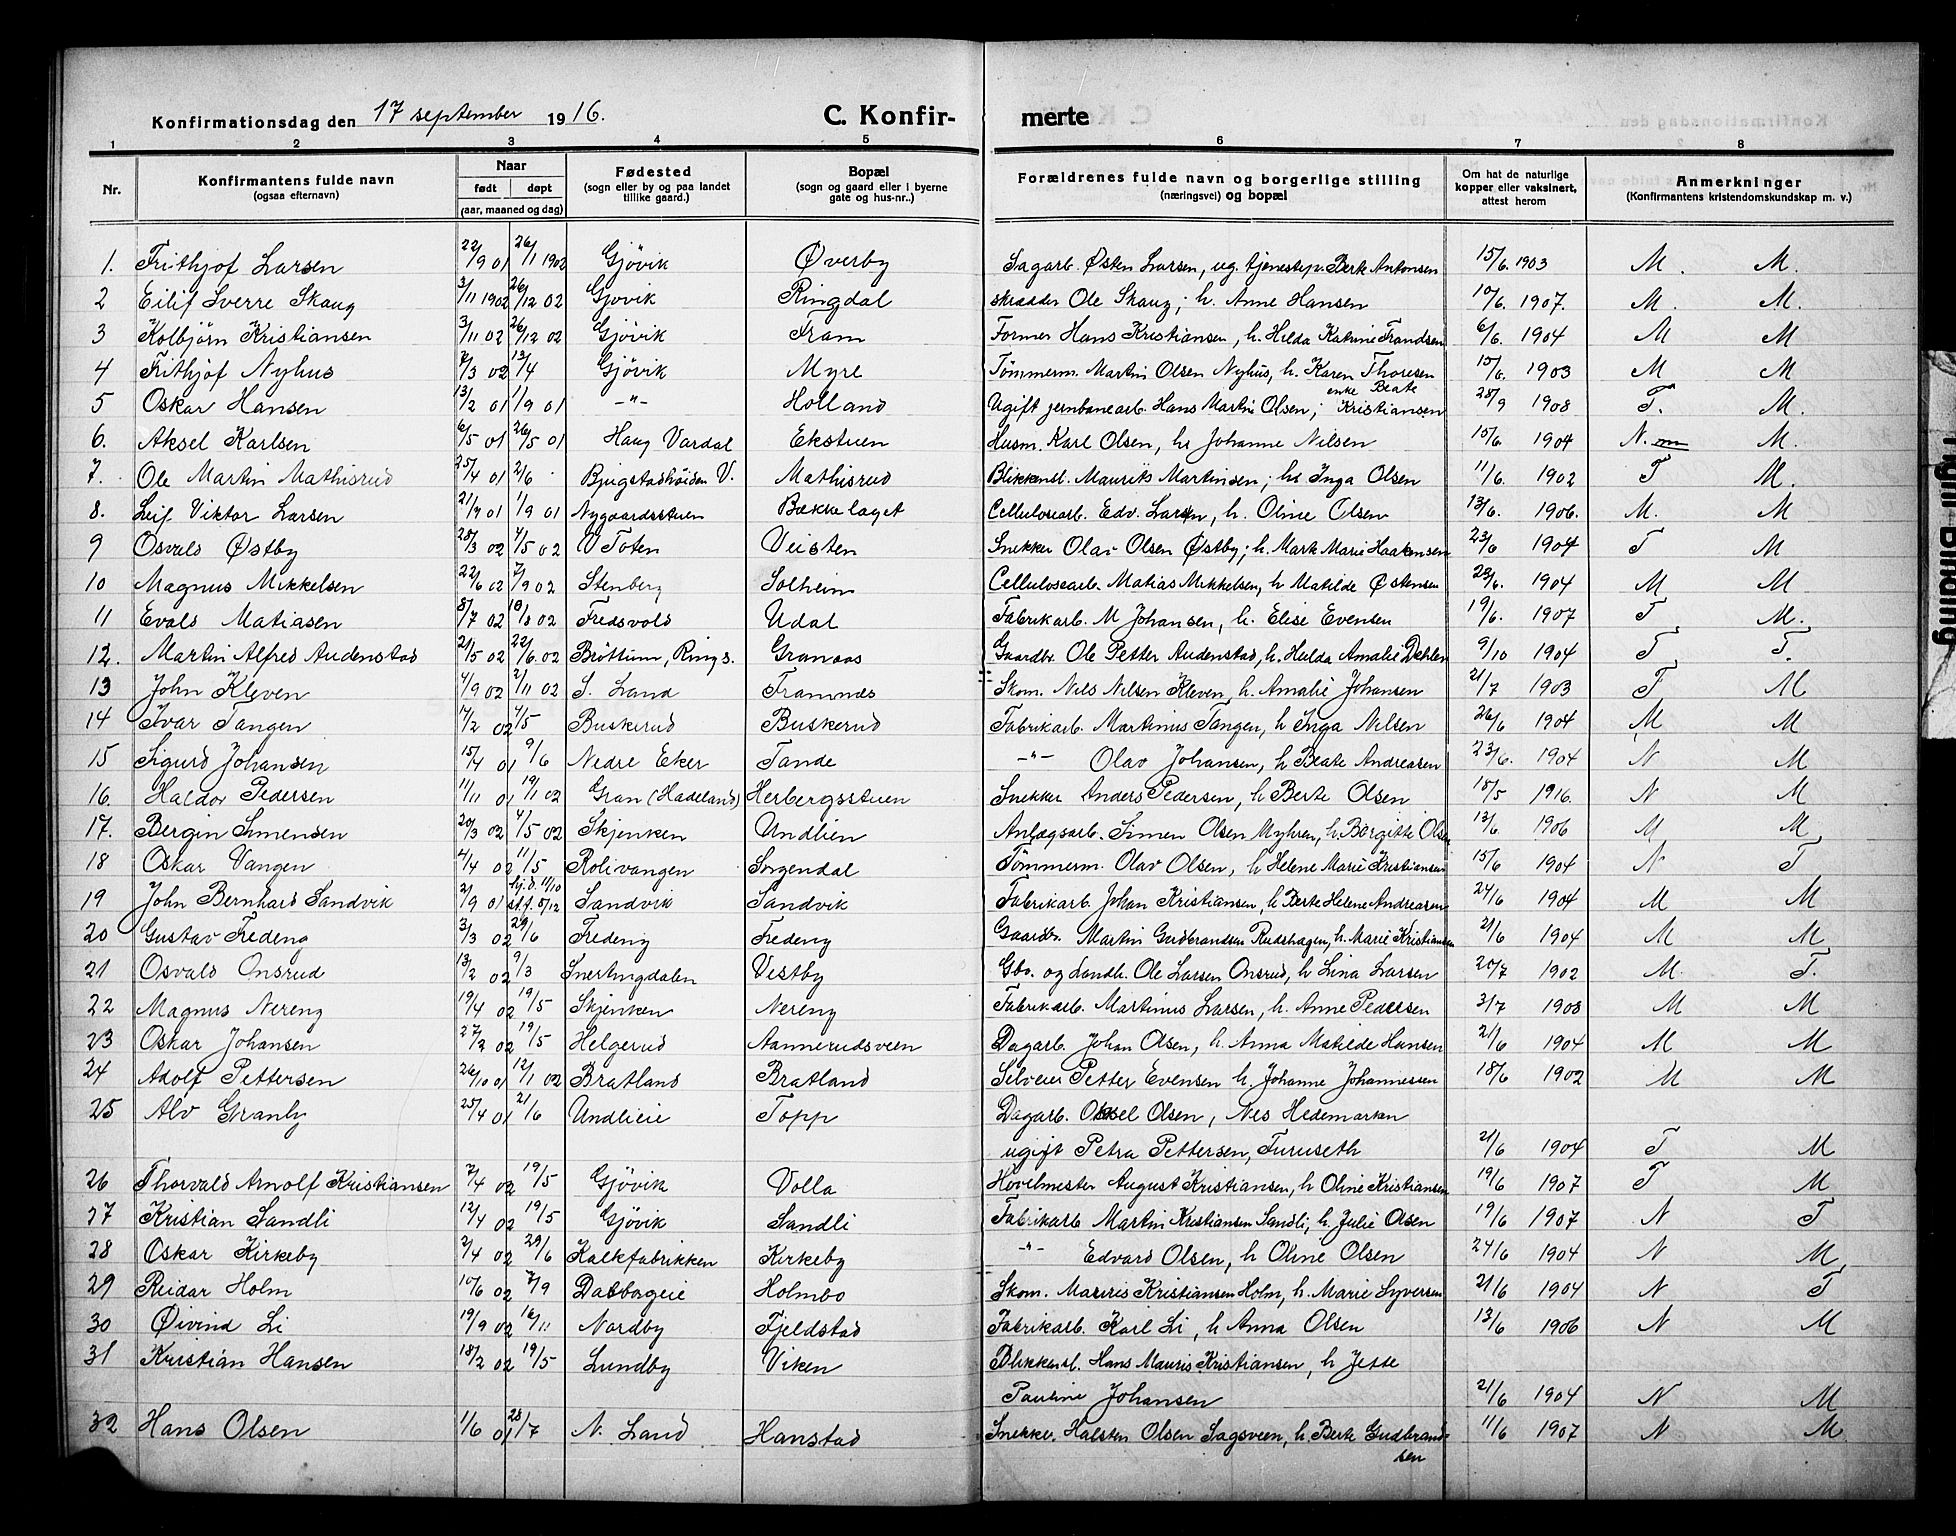 Konfirmationsdag den 17 september 1916. C. Konfir- merte
1 2 3 4 5 6 7 8
Nr. Konfirmantens fulde navn (ogsaa efternavn) Naar født døpt (aar, maaned og dag) Fødested (sogn eller by og paa landet tillike gaard.) Bopæl (sogn og gaard eller i byerne gate og hus-nr..) Forældrenes fulde navn og borgerlige stilling (næringsvei) og bopæl Om hat de naturlige kopper eller vaksinert, attest herom Anmerkninger (Konfirmantens kristendomskundskap m. v.)
1. Frithjof Larsen 22/9 01 26/1 1902 Gjövik Øverby Sagarb. Østen Larsen, ug. tjenestep. Berte Antonsen 15/6. 1903 M. M.
2 Eilif Sverre Skaug 3/11 1902 26/12 02 Gjövik Ringdal skrædder Ole Skaug; h. Anne Hansen 10/6. 1907. M. M.
3 Kolbjörn Kristiansen 3/11 02 26/12 02 Gjövik Fram Former Hans Kristiansen, h. Hilda Katrine Frandsen 6/6. 1904 M M
4 Frithjof Nyhus 7/3 02 13/4 Gjövik Myre Tømmerm. Martin Olsen Nyhus, h. Karen Thoresen 15/6. 1903 M M
5 Oskar Hansen 13/2 01 1/9 01 -"- Holland Ugift jernbanearb. Hans Martin Olsen; enke Beate Kristiansen 28/9 1908 T. M.
6. Aksel Karlsen 6/5 01 26/5 01 Haug Vardal Ekstuen Husm. Karl Olsen, h. Johanne Nilsen 15/6. 1904 N. M.
7. Ole Martin Mathisrud 25/4 01 2/6 Bjugstadhöiden V. Mathisrud Blikkensl. Maurits Martinsen; h. Inga Olsen 11/6. 1902 T M.
8. Leif Viktor Larsen 21/7 01 1/9 01 Nygaardsstuen Bækkelaget Cellulosearb. Edv. Larsen, h. Oline Olsen 13/6. 1906. M. M
9 Osvald Østby 28/3 02 4/5 02 V Toten Veisten Snekker Olav Olsen Østby; h. Mark Marie Haakensen 23/6 1904 T M
10 Magnus Mikkelsen 22/6 02 7/9 02 Stenberg Solheim Cellulosearb. Matias Mikkelsen, h Matilde Østensen 28/6. 1904 M M
11 Evald Matiasen 8/7 02 10/8 02 Fredsvold Udal Fabrikarb. M Johansen, h. Elise Evensen 19/6. 1907 T M.
12. Martin Alfred Audenstad 21/5 02 22/6. 02 Bröttum, Rings. Granaas Gaardbr. Ole Petter Audenstad, h. Hulda Amalie Dehlen 9/10 1904 T T.
13 John Kleven 4/9 02 2/11 02 S. Land Framnæs Skom. Nils Nilsen Kleven, h. Amalie Johansen 21/7 1903 T M
14 Ivar Tangen 17/2 02 4/5 Buskerud Buskerud Fabrikarb. Martinus Tangen, h Inga Nilsen 26/6 1904 M M
15 Sigurd Johansen 15/4 01 9/6 Nedre Eker Tande -"- Olav Johansen, h Beate Andreasen 23/6. 1904 N M
16. Haldor Pedersen 11/11 01 19/1 02 Gran (Hadeland) Herbergsstuen Snekker Anders Pedersen, h Berte Olsen 18/5 1916. N M
17. Bergin Simensen 20/3 02 4/5 02 Skjenken Undlien Anlægsarb. Simen Olsen Myhren, h. Borgitte Olsen 13/6. 1906 M M
18 Oskar Vangen 4/4 02 11/5 Rolivangen Sorgendal Tömmerm. Olav Olsen, h Helene Marie Kristiansen 15/6 1904 N T
19 John Bernhard Sandvik 2/9 01 hj.d. 11/10 st.f. 8/12 Sandvik Sandvik Fabrikarb. Johan Kristiansen, h Berte Helene Andreasen 24/6 1904 M M
20 Gustav Fredeng 3/3 02 29/6 Fredeng Fredeng Gaardbr. Martin Gudbrandsen Rudshagen, h. Marie Kristiansen 21/6 1904 M M
21 Osvald Onsrud 13/2 02 9/3 Snertingdalen Vestby Gbr. og Landh. Ole Larsen Onsrud, h Lina Larsen 20/7 1902 M. T.
22 Magnus Nereng 19/4 02 19/5 Skjenken Nereng Fabrikarb. Martinus Larsen, h. Anne Pedersen 3/7 1908 M M
23 Oskar Johansen 27/2 02 19/5 Helgerud Aannerudsveen Dagarb. Johan Olsen, h. Anna Matilde Hansen 21/6 1904 M M
24 Adolf Pettersen 26/10 01 12/1 02 Bratland Bratland Selveier Petter Evensen h. Johanne Johannessen 18/6 1902 M M
25 Alv Granly 25/4 01 21/6 Undlieie Topp Dagarb. Oksel Olsen, Nes Hedemarken
ugift Petra Pettersen, Furuseth 21/6 1904 T M
26 Thorvald Arnolf Kristiansen 7/4 02 19/5 Gjövik Volla Hövelmester August Kristiansen, h Oline Kristiansen 19/6 1907 T M
27 Kristian Sandli 12/4 02 19/5 Gjövik Sandli Fabrikarb Martin Kristiansen Sandli, h. Julie Olsen 19/6 1907 N T
28 Oskar Kirkeby 2/4 02 29/6 Kalkfabrikken Kirkeby -"- Edvard Olsen, h Oline Olsen 24/6 1904 N M
29 Reidar Holm 10/6 02 7/9 Dalborgeie Holmbo Skom. Mauris Kristiansen Holm, h. Marie Syversen 21/6 1904 N T
30 Øivind Li 19/9 02 16/11 Nordby Fjeldstad Fabrikarb. Karl Li, h Anna Olsen 13/6 1906 N M
31 Kristian Hansen 18/2 02 19/5 Lundby Viken Blikkensl. Hans Mauris Kristiansen, h Jette
Pauline Johansen 21/6 1904 N M
32 Hans Olsen 1/6 01 28/7 N. Land Hanstad Snekker Halsten Olsen Sagsveen, h. Berte Gudbrand-
sen 11/6 1907 N M